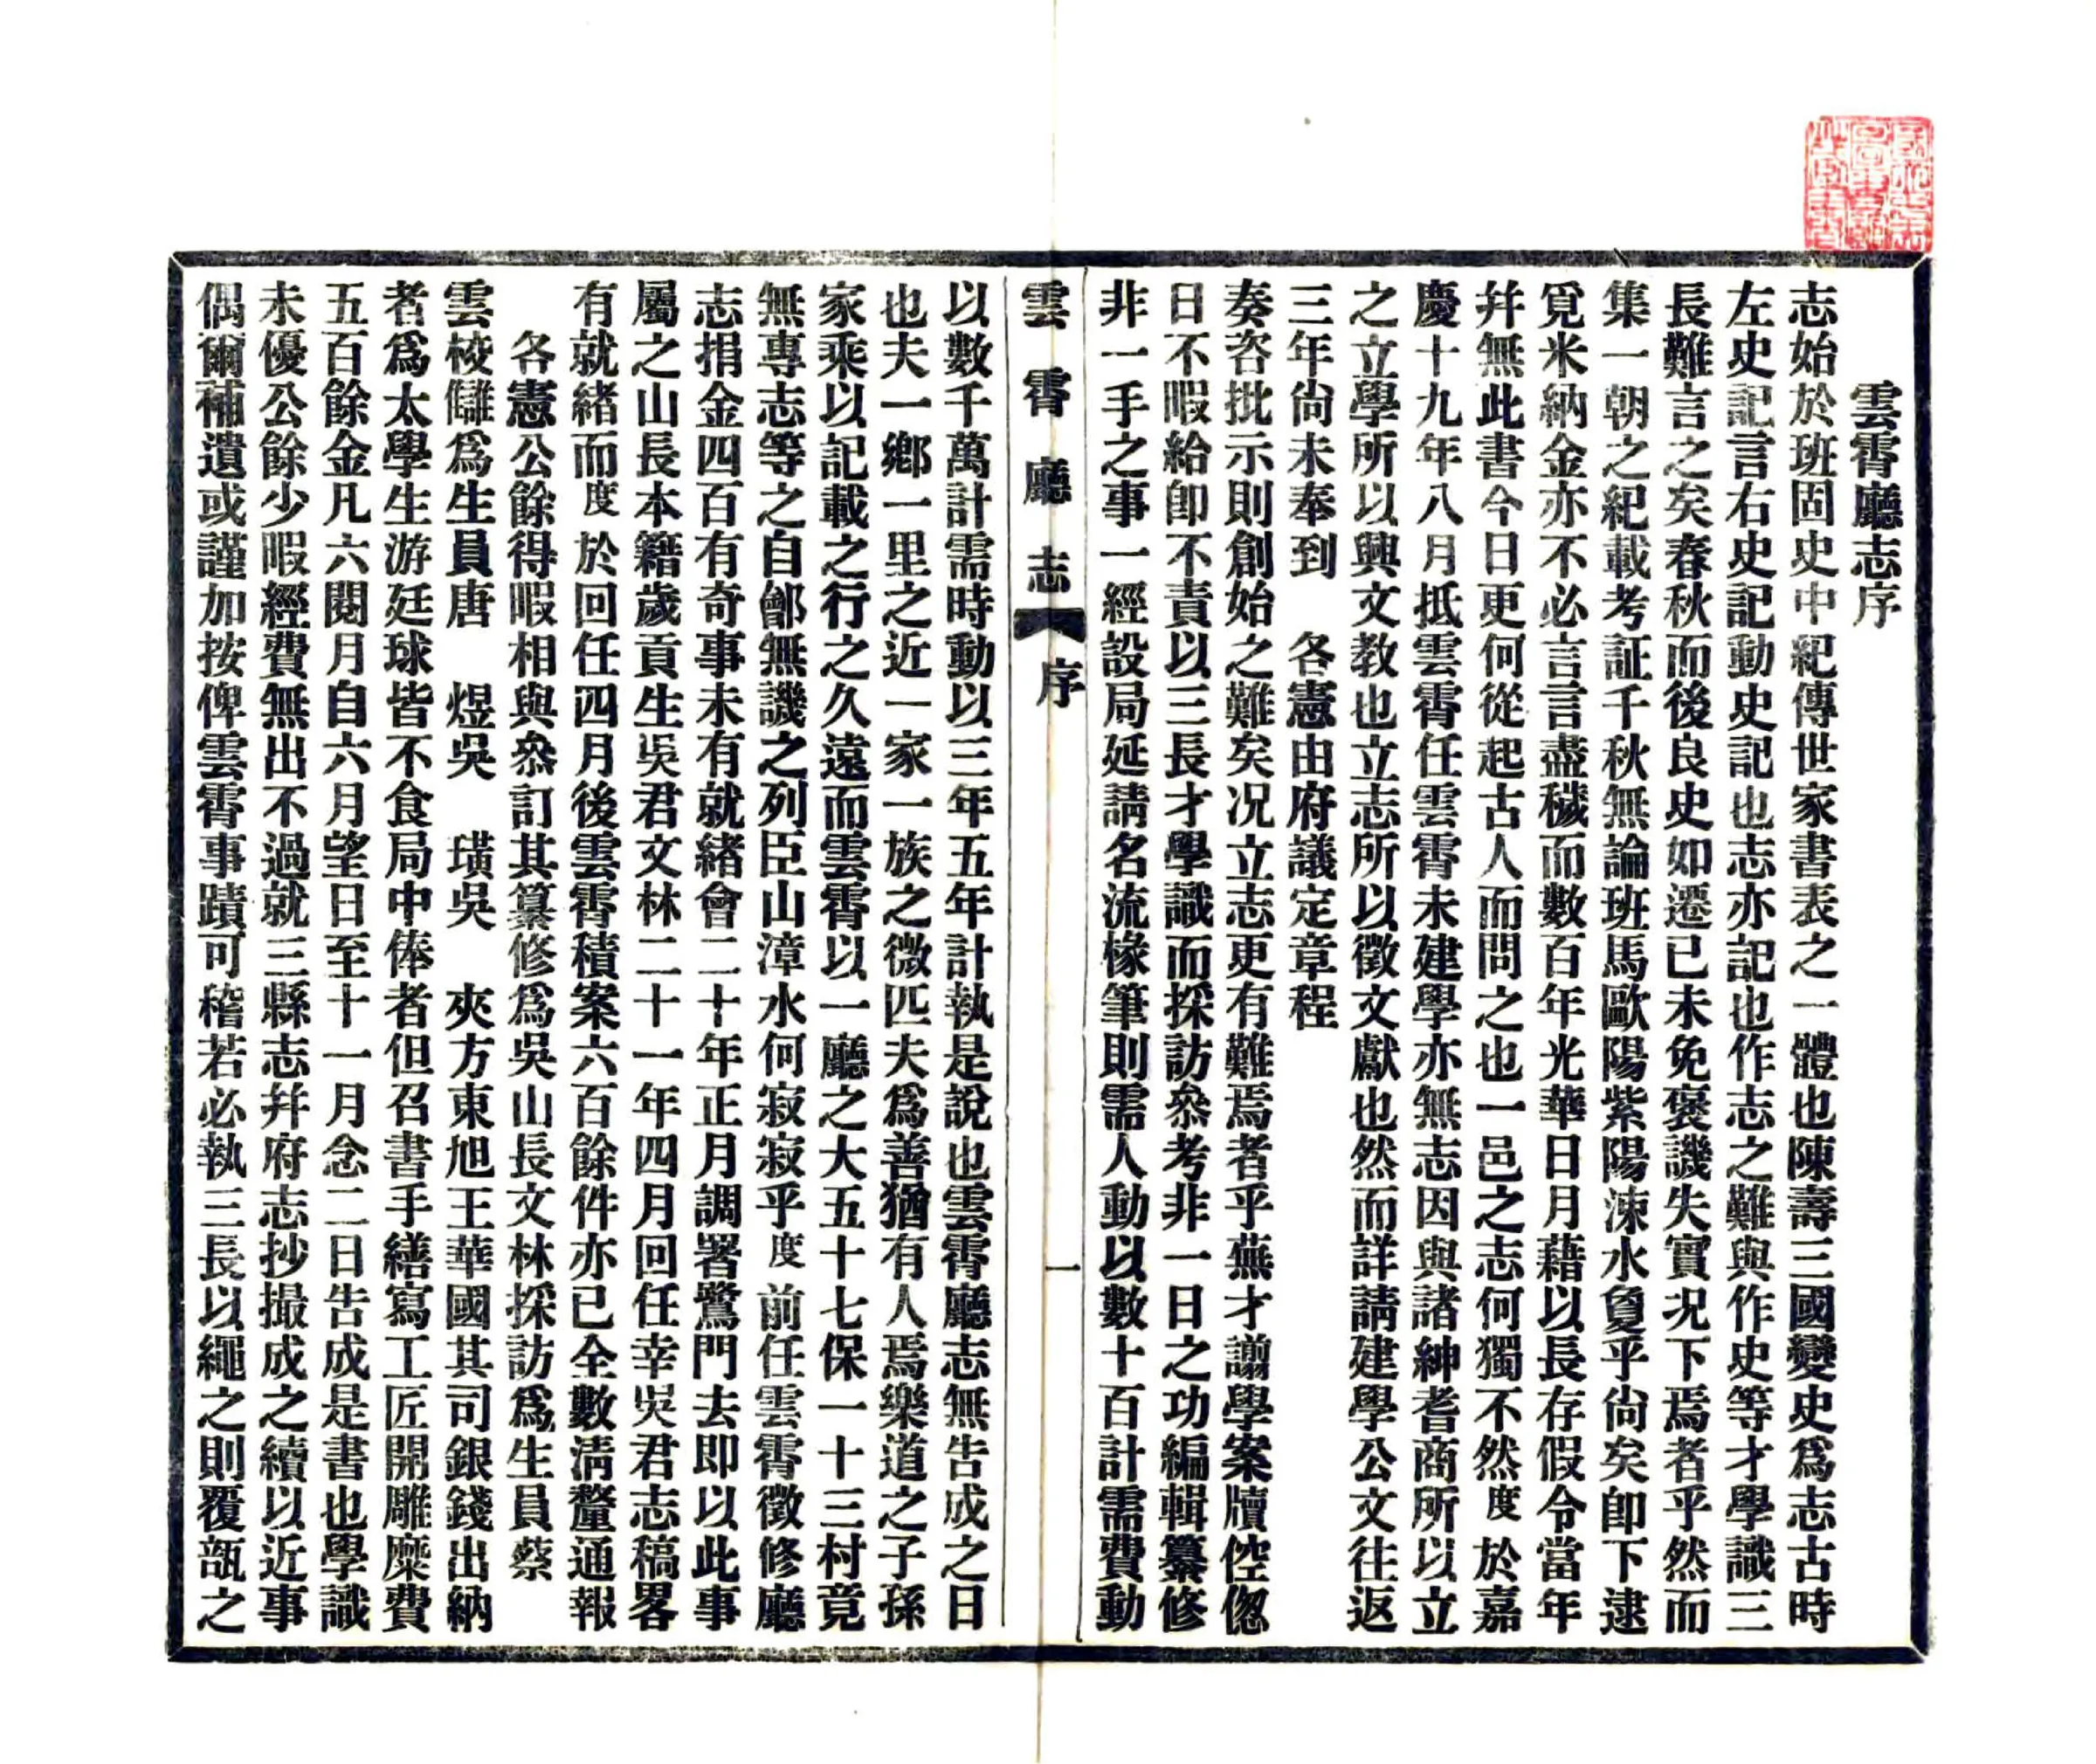 雲霄廳志序
志始於班固史中紀傳世家書表之一體也陳壽三國變史爲志古時
左史記言右史記動史記也志亦記也作志之難與作史等才學識三
長難言之矣春秋而後良史如遷已未免褒譏失實况下焉者乎然而
集一朝之紀載考証千秋無論班馬歐陽紫陽涑水敻乎尚矣卽下逮
覓米納金亦不必言言盡穢而數百年光華日月藉以長存假令當年
幷無此書今日更何從起古人而問之也一邑之志何獨不然度於嘉
慶十九年八月抵雲霄任雲霄未建學亦無志因與諸紳耆商所以立
之立學所以興文教也立志所以徵文獻也然而詳請建學公文往返
三年尚未奉到 各憲由府議定章程
奏咨批示則創始之難矣况立志更有難焉者乎蕪才謭學案牘倥偬
日不暇給卽不責以三長才學識而採訪叅考非一日之功編輯纂修
非一手之事一經設局延請名流椽筆則需人動以數十百計需費動
雲霄廳志 序 一
以數千萬計需時動以三年五年計執是說也雲霄廳志無告成之日
也夫一鄉一里之近一家一族之微匹夫爲善猶有人焉樂道之子孫
家乘以記載之行之久遠而雲霄以一廳之大五十七保一十三村竟
無專志等之自鄶無譏之列臣山漳水何寂寂乎度前任雲霄徵修廳
志捐金四百有奇事未有就緒會二十年正月調署鷺門去即以此事
屬之山長本籍歲貢生吳君文林二十一年四月回任幸吳君志稿畧
有就緒而度於回任四月後雲霄積案六百餘件亦已全數清釐通報
各憲公餘得暇相與叅訂其纂修爲吳山長文林採訪爲生員蔡
雲校讎爲生員唐 煜吳 璜吳 夾方東旭王華國其司銀錢出納
者爲太學生游廷球皆不食局中俸者但召書手繕寫工匠開雕糜費
五百餘金凡六閱月自六月望日至十一月念二日告成是書也學識
未優公餘少暇經費無出不過就三縣志幷府志抄撮成之續以近事
偶爾補遺或謹加按俾雲霄事蹟可稽若必執三長以繩之則覆瓿之